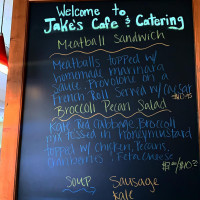 Welcome to
Jake's Cafe & Catering
Meatball Sandwich
Meatballs topped w/
homemade marinara
sauce, Provolone on a
French Roll. Served w/
Broccoli Pecan Salad
Kale, Red Cabbage, Broccoli
mix tossed in honeymustard
topped w/ Chicken, Pecans,
cranberries, Feta cheese
Soup
Sausage
Kale